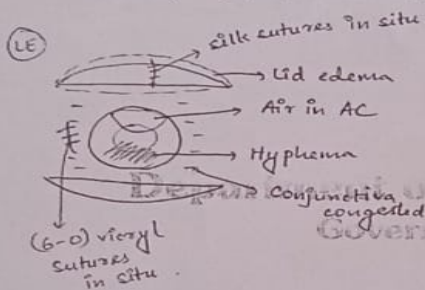 LE
silk sutures in situ
Lid edema
Air in AC
Hyphema
Conjunctiva
congested
(6-0) vicryl
sutures
in situ.